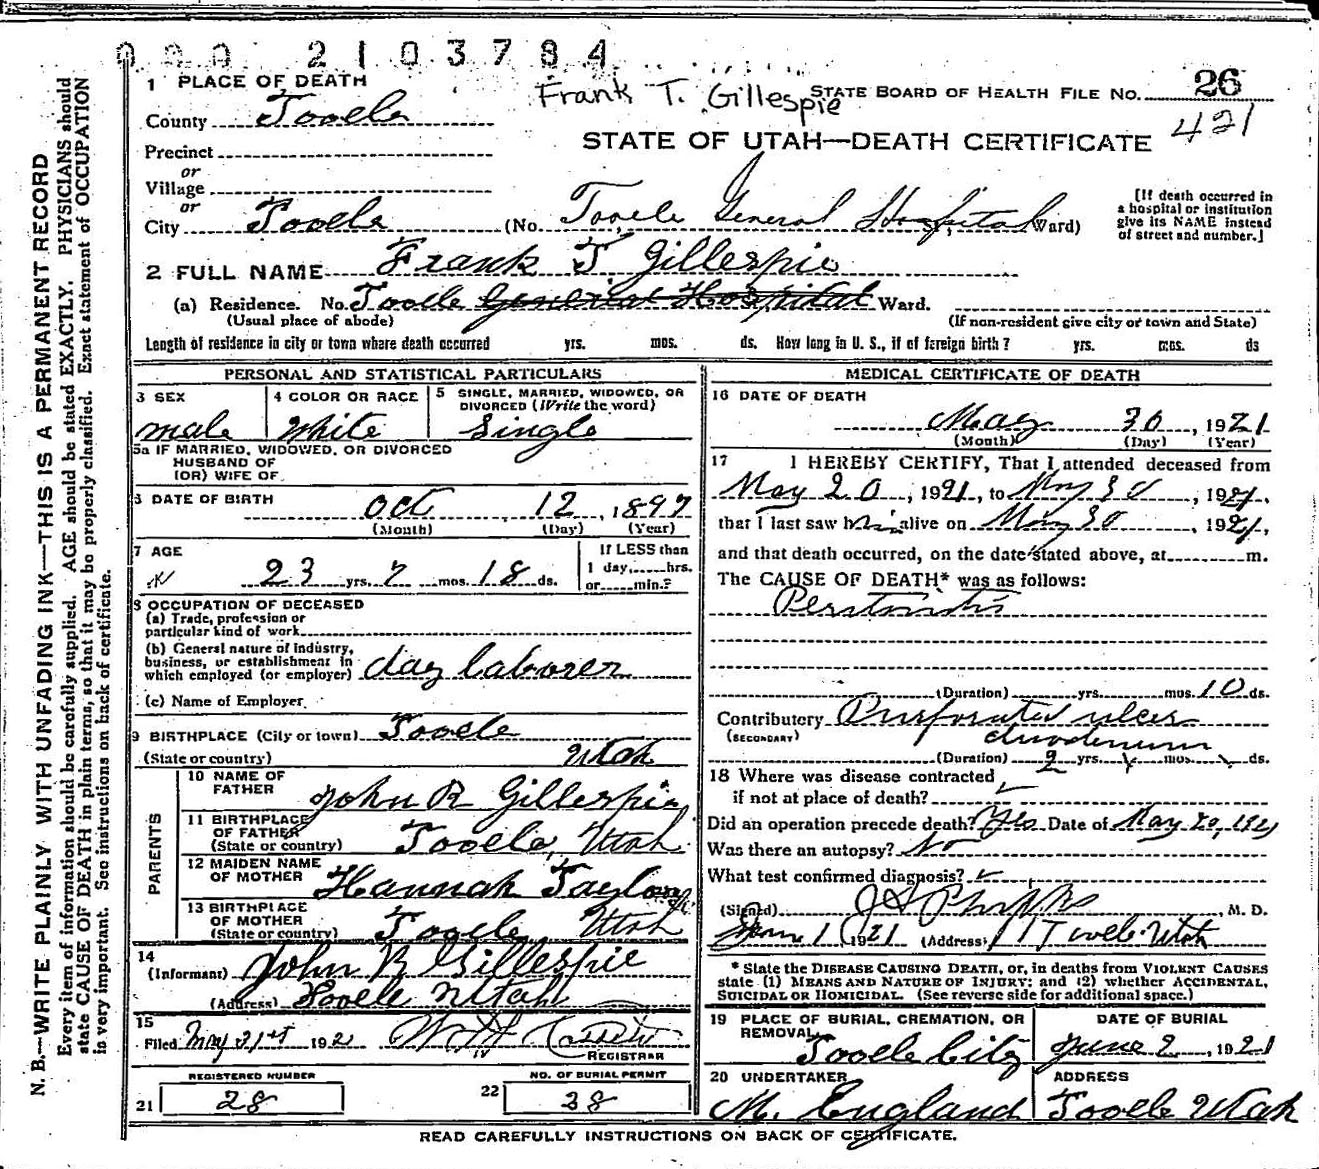 000 2103784
1 PLACE OF DEATH
Frank T. Gillespie
STATE BOARD OF HEALTH FILE NO. 26
421
County Tooele
STATE OF UTAH—DEATH CERTIFICATE
Precinct
or
Village
or
City Tooele (No. Tooele General Hospital St., Ward)
[If death occurred in
a hospital or institution
give its NAME instead
of street and number.]
2 FULL NAME Frank T Gillespie
(a) Residence. No. Tooele General Hospital Ward.
(Usual place of abode) (If non-resident give city or town and State)
Length of residence in city or town where death occurred yrs. mos. ds. How long in U. S., if of foreign birth? yrs. mos. ds
PERSONAL AND STATISTICAL PARTICULARS
3 SEX 4 COLOR OR RACE 5 SINGLE, MARRIED, WIDOWED, OR
DIVORCED (Write the word)
male White Single
5a IF MARRIED, WIDOWED, OR DIVORCED
HUSBAND OF
(OR) WIFE OF
6 DATE OF BIRTH Oct 12, 1897
(Month) (Day) (Year)
7 AGE If LESS than
23 yrs. 7 mos. 18 ds. 1 day,......hrs.
or......min.?
8 OCCUPATION OF DECEASED
(a) Trade, profession or
particular kind of work
(b) General nature of industry,
business, or establishment in
which employed (or employer) day laborer
(c) Name of Employer
9 BIRTHPLACE (City or town) Tooele
(State or country) Utah
PARENTS
10 NAME OF
FATHER John R Gillespie
11 BIRTHPLACE
OF FATHER
(State or country) Tooele, Utah
12 MAIDEN NAME
OF MOTHER Hannah Taylor
13 BIRTHPLACE
OF MOTHER
(State or country) Tooele Utah
14
(Informant) John R Gillespie
(Address) Tooele Utah
15
Filed May 31st 1921
REGISTRAR
REGISTERED NUMBER NO. OF BURIAL PERMIT
21 28 22 38
MEDICAL CERTIFICATE OF DEATH
16 DATE OF DEATH
May 30, 1921
(Month) (Day) (Year)
17 I HEREBY CERTIFY, That I attended deceased from
May 20, 1921, to May 30, 1921,
that I last saw him alive on May 30, 1921,
and that death occurred, on the date stated above, at m.
The CAUSE OF DEATH* was as follows:
Peritonitis
(Duration) yrs. mos. 10 ds.
Contributory Perforated ulcer
(SECONDARY) duodenum
(Duration) 2 yrs. mos. ds.
18 Where was disease contracted
if not at place of death?
Did an operation precede death? Yes Date of May 20, 1921
Was there an autopsy? No
What test confirmed diagnosis?
(Signed) J A Phipps, M. D.
June 1 1921 (Address) Tooele Utah
* State the DISEASE CAUSING DEATH, or, in deaths from VIOLENT CAUSES
state (1) MEANS AND NATURE OF INJURY; and (2) whether ACCIDENTAL,
SUICIDAL OR HOMICIDAL. (See reverse side for additional space.)
19 PLACE OF BURIAL, CREMATION, OR
REMOVAL DATE OF BURIAL
Tooele City June 2, 1921
20 UNDERTAKER ADDRESS
M. England Tooele Utah
READ CAREFULLY INSTRUCTIONS ON BACK OF CERTIFICATE.
N. B.—WRITE PLAINLY WITH UNFADING INK—THIS IS A PERMANENT RECORD
Every item of information should be carefully supplied. AGE should be stated EXACTLY. PHYSICIANS should
state CAUSE OF DEATH in plain terms, so that it may be properly classified. Exact statement of OCCUPATION
is very important. See instructions on back of certificate.